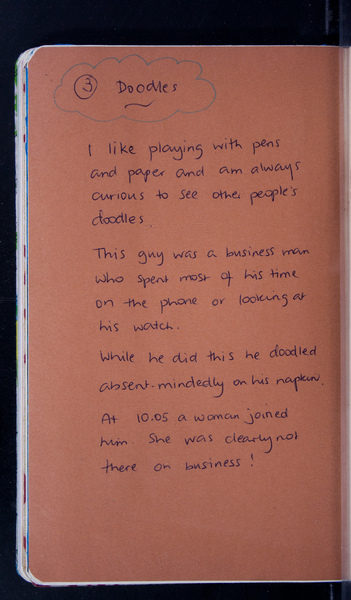 3 Doodles
I like playing with pens
and paper and am always
curious to see other people's
doodles.
This guy was a business man
who spent most of his time
on the phone or looking at
his watch.
While he did this he doodled
absent-mindedly on his napkin.
At 10.05 a woman joined
him. She was clearly not
there on business!